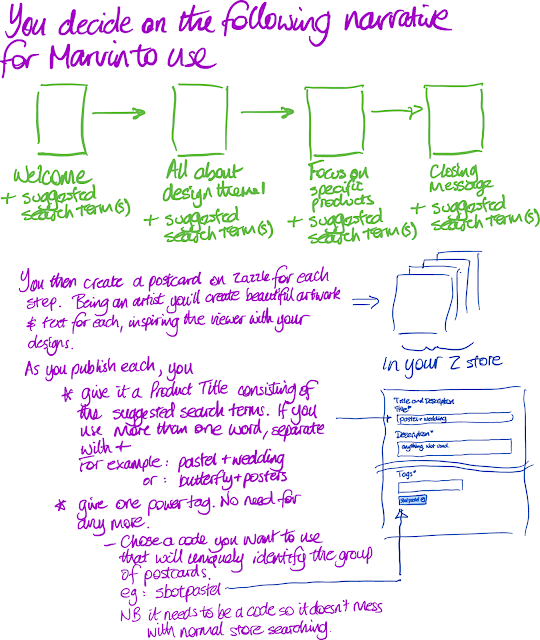 You decide on the following narrative
for Marvin to use
Welcome
+ suggested
search term(s)
All about
design theme1
+ suggested
search term(s)
Focus on
specific
products
+ suggested
search term(s)
Closing
Message
+ suggested
search term(s)
You then create a postcard on Zazzle for each
step. Being an artist you'll create beautiful artwork
& text for each, inspiring the viewer with your
designs.
in your Z store
As you publish each, you
* give it a Product Title consisting of
the suggested search terms. If you
use more than one word, separate
with +
For example: pastel+wedding
or: butterfly+posters
* give one power tag. No need for
any more.
- Choose a code you want to use
that will uniquely identify the group
of postcards.
eg: sbotpastel
NB it needs to be a code so it doesn't mess
with normal store searching.
Title and Description
Title*
pastel+wedding
Description*
anything not used
Tags*
sbotpastel